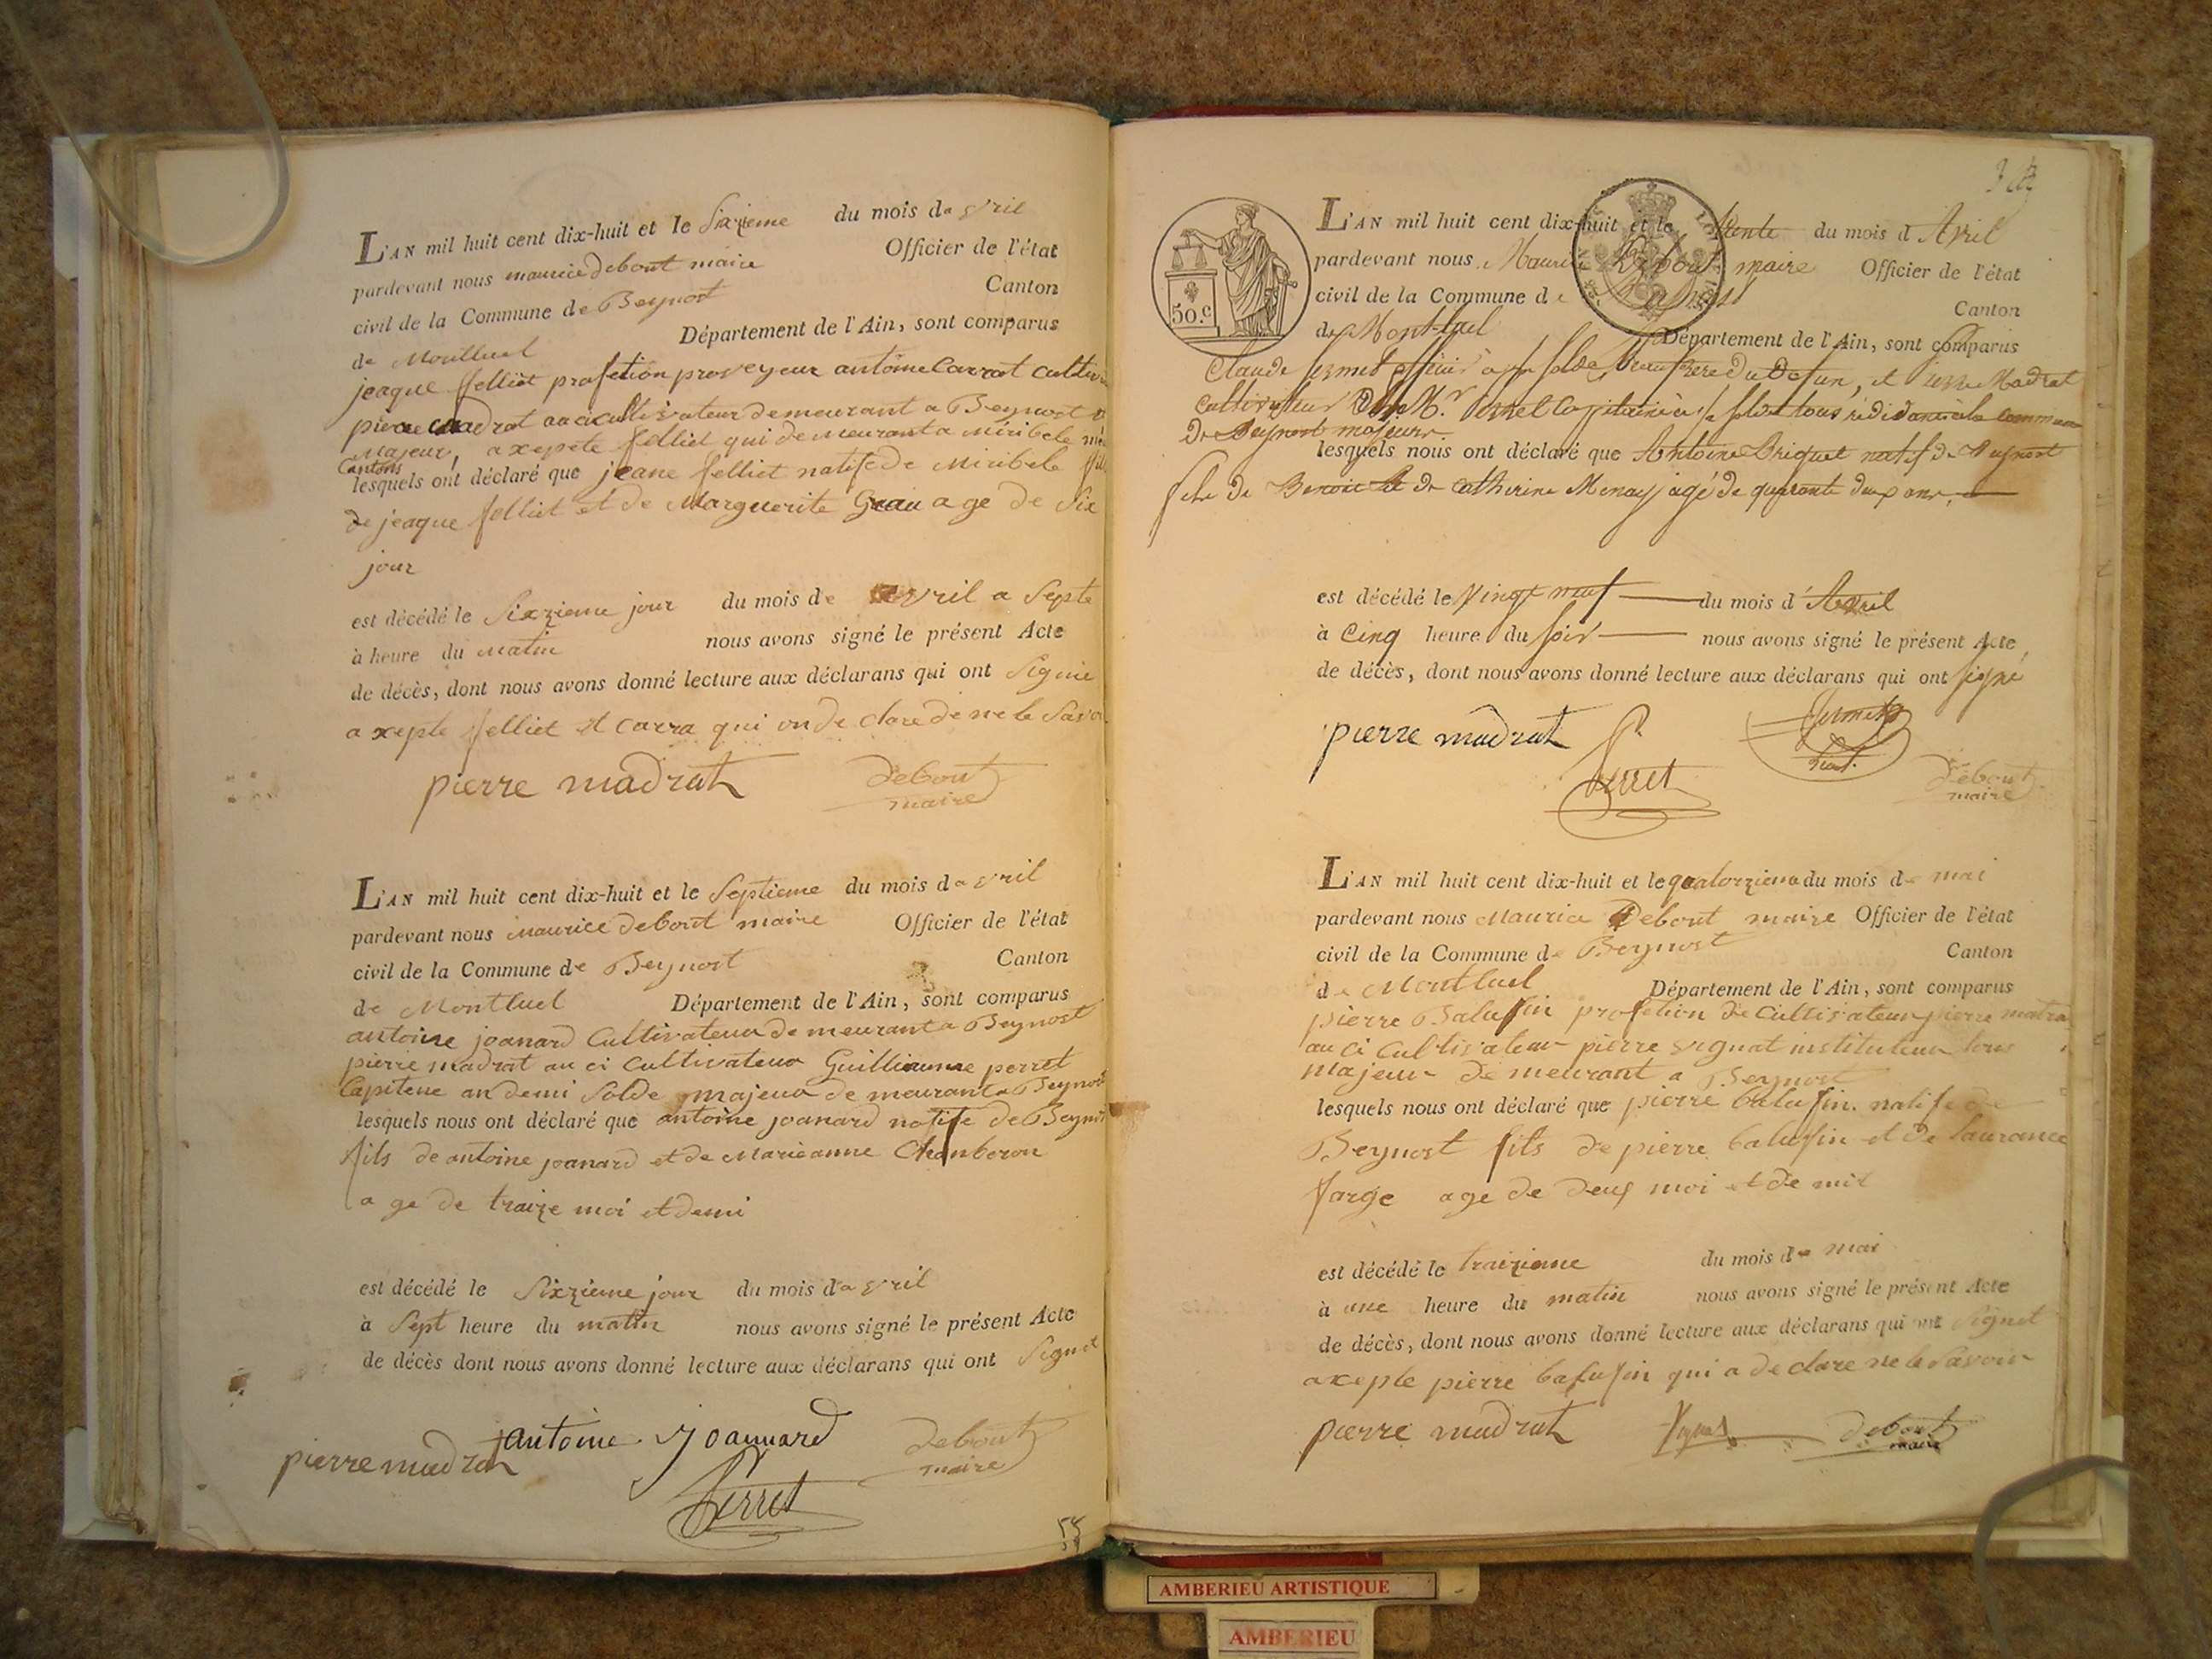 L'AN mil huit cent dix-huit et le Sixieme du mois da vril
pardevant nous maurice debout maire Officier de l'état
civil de la Commune de Beynost Canton
de Montluel Département de l'Ain, sont comparus
jeaque felliet profetion proveyeur antoine Carrat
pierre madrat auci cultivateur demeurant a Beynost
majeur, axepete felliet qui demeurant a miribele
Cantons
lesquels ont déclaré que jeane felliet natife de Miribele
de jeaque felliet et de Marguerite a ge de Six
jour
est décédé le Sixzieme jour du mois de avril a Septe
à heure du matin nous avons signé le présent Acte
de décès, dont nous avons donné lecture aux déclarans qui ont Signie
a xepte felliet et carra qui on de clare de ne le
pierre madrat debout
maire
L'AN mil huit cent dix-huit et le Septieme du mois da vril
pardevant nous maurice debout maire Officier de l'état
civil de la Commune de Beynost Canton
de Montluel Département de l'Ain, sont comparus
antoine joanard Cultivateur de meurant a Beynost
pierre madrat au ci cultivateur Guilliaumme perret
Capitene an demi Solde majeur de meurant a Beynost
lesquels nous ont déclaré que antoine joanard natife de Beynost
fils de antoine joanard et de Marieanne Chanberon
a ge de traize moi et demi
est décédé le Sixzieme jour du mois da vril
à Sept heure du matin nous avons signé le présent Acte
de décès dont nous avons donné lecture aux déclarans qui ont Signet
antoine joannard debout
pierre madrat maire
Perret
55
50.c
L'AN mil huit cent dix-huit et le trente du mois d Avril
pardevant nous Maurice Debout maire Officier de l'état
civil de la Commune de Canton
de Mont-luel Département de l'Ain, sont comparus
Claude officier a solde frere du Defun, et Madrat
Cultivateur M.r Perret Capitaine a solde tous
De Beynost majeurs.
lesquels nous ont déclaré que Antoine Briquet natif de Beynost
fils de Benoit et de Catherine agé de quarante deux ans.
est décédé le Vingt neuf du mois d'Avril
à Cinq heure du soir nous avons signé le présent Acte
de décès, dont nous avons donné lecture aux déclarans qui ont signé
pierre madrat
Perret debout
maire
L'AN mil huit cent dix-huit et le quatorzieme du mois de mai
pardevant nous Maurice Debout maire Officier de l'état
civil de la Commune de Beynost Canton
de Montluel Département de l'Ain, sont comparus
pierre Balufin profetion de Cultivateur pierre matra
au ci Cultivateur pierre vignat instituteur tous
majeur de meurant a Beynost
lesquels nous ont déclaré que pierre balufin natife de
Beynost fils de pierre balufin et de laurance
farge age de deux moi et de mit
est décédé le traizieme du mois de mai
à une heure du matin nous avons signé le présent Acte
de décès, dont nous avons donné lecture aux déclarans qui ont Signet
axepte pierre balufin qui a de clare ne le Savoir
pierre madrat debout
maire
AMBERIEU ARTISTIQUE
AMBERIEU